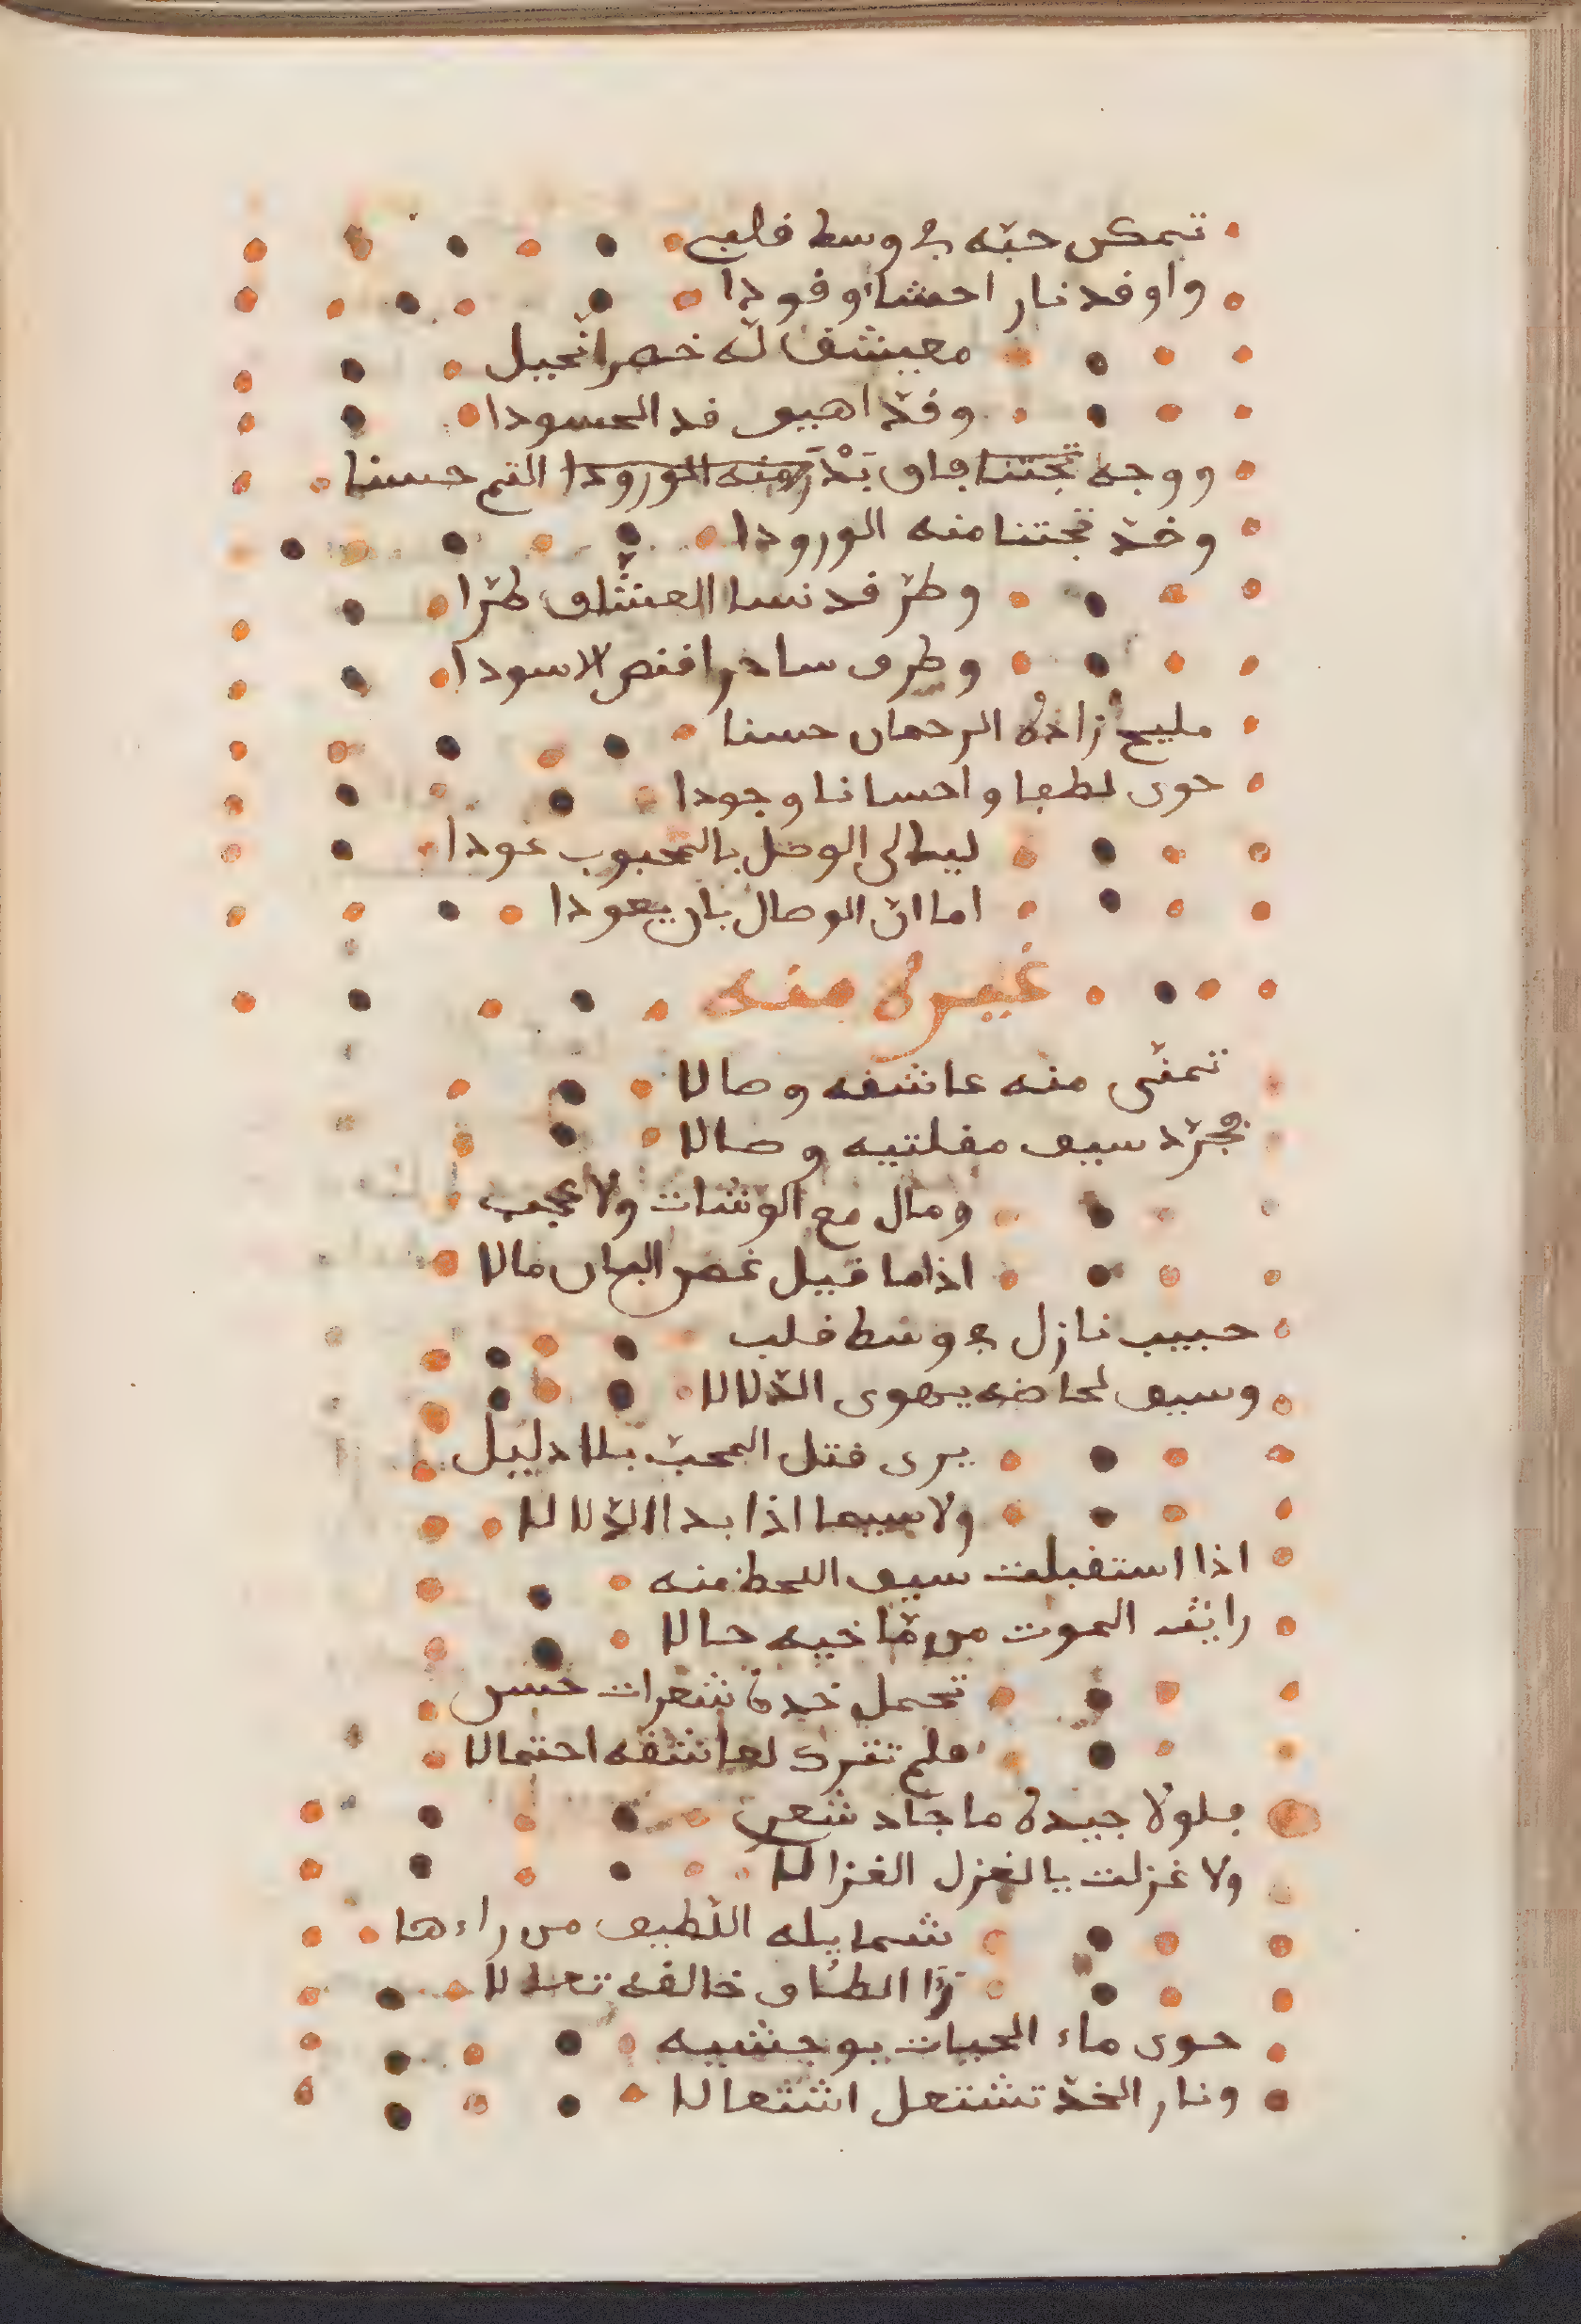 تمكن حبّه في وسط قلبي
واوقد نار احشاءِ وقودا
معيشق له خصرا نحيل
وقدّ اهيف قد الحسودا
ووجه تجتنا فاق بَدْرَ منه الورودا التم حسنا
وخدّ تجتنا منه الورودا
وطرّ قد نسا العشّاق طرّا
وطرف ساحر اقنص الاسودا
مليح زاده الرحمان حسنا
حوى لطفا واحسانا وجودا
ليطالى الوصل بالمحبوب عودا
اما ان الوصال بان يعودا
غيره منه
تمنّى منه عاشقه وصالا
فجرّد سيف مقلتيه وصالا
ومال مع الوشات ولا عجيب
اذا ما قيل غصن البان مالا
حبيب نازل في وسط قلب
وسيف لحاضه يهوى الدّلالا
يرى قتل المحبّ بلا دليل
ولا سيما اذا بدا الدّلالا
اذا استقبلت سيف اللحظ منه
رايت الموت من مّاضيه حالا
تحمل خده شعرات حسن
فلم تترك لعاشقه احتمالا
فلولا جيده ما جاد شعري
ولا غزلت بالغزل الغزالا
شمايله اللّطيف من راءها
رّءا الطاف خالقه تعالا
حوى ماء الحيات بوجنتيه
ونار الخدّ تشتعل اشتعالا